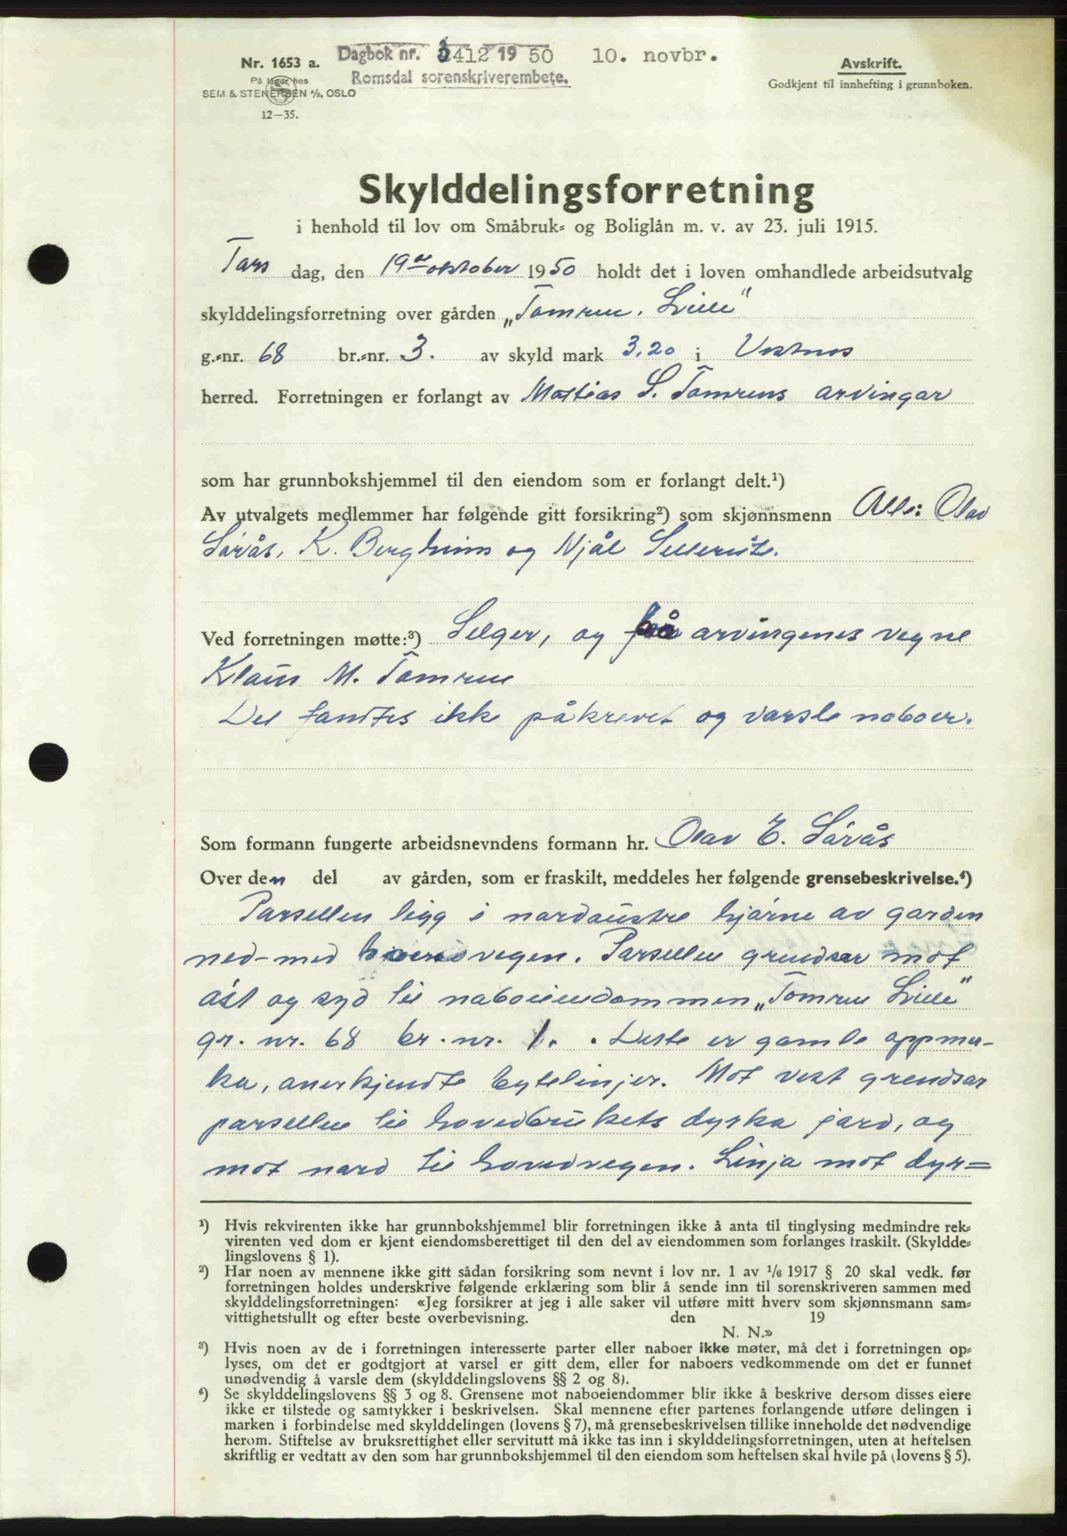 Nr. 1653 a.
På lager hos
SEM & STENERSEN A/S, OSLO
12—35.
Dagbok nr. 3412 19 50 10. novbr.
Romsdal sorenskriverembete.
Avskrift.
Godkjent til innhefting i grunnboken.
Skylddelingsforretning
i henhold til lov om Småbruk- og Boliglån m. v. av 23. juli 1915.
Tors dag, den 19de oktober 1950 holdt det i loven omhandlede arbeidsutvalg
skylddelingsforretning over gården „Tomren, Lille"
g.-nr. 68 br.-nr. 3. av skyld mark 3,20 i Vestnes
herred. Forretningen er forlangt av Mattias S. Tomrens arvingar
som har grunnbokshjemmel til den eiendom som er forlangt delt.¹)
Av utvalgets medlemmer har følgende gitt forsikring²) som skjønnsmenn Alle: Olav
Sørås, K. Bergheim og Njål
Ved forretningen møtte:³) Selger, og på arvingenes vegne
Klaus M. Tomren
Det fandtes ikke påkrevet og varsle naboer.
Som formann fungerte arbeidsnevndens formann hr. Olav E. Sørås
Over den del av gården, som er fraskilt, meddeles her følgende grensebeskrivelse.⁴)
Parsellen ligg i nordaustre hjørne av garden
ned-med hovedvegen. Parsellen grendsar mot
aust og syd til naboeiendommen „Tomren Lille"
gr. nr. 68 br. nr. 1. . Deste er gamle oppmu-
ka, anerkjendte bytelinjer. Mot vest grendsar
parsellen til hovedbrukets dyrka jord, og
mot nord til hovedvegen. Linja mot dyr=
¹) Hvis rekvirenten ikke har grunnbokshjemmel blir forretningen ikke å anta til tinglysing medmindre rek-
virenten ved dom er kjent eiendomsberettiget til den del av eiendommen som forlanges fraskilt. (Skyldde-
lingslovens § 1).
²) Har noen av mennene ikke gitt sådan forsikring som nevnt i lov nr. 1 av 1/6 1917 § 20 skal vedk. før
forretningen holdes underskrive følgende erklæring som blir å sende inn til sorenskriveren sammen med
skylddelingsforretningen: «Jeg forsikrer at jeg i alle saker vil utføre mitt hverv som skjønnsmann sam-
vittighetsfullt og efter beste overbevisning. den 19
N. N.»
³) Hvis noen av de i forretningen interesserte parter eller naboer ikke møter, må det i forretningen op-
lyses, om det er godtgjort at varsel er gitt dem, eller for naboers vedkommende om det er funnet
unødvendig å varsle dem (skylddelingslovens §§ 2 og 8).
⁴) Se skylddelingslovens §§ 3 og 8. Grensene mot naboeiendommer blir ikke å beskrive dersom disses eiere
ikke er tilstede og samtykker i beskrivelsen. Skal mennene efter partenes forlangende utføre delingen i
marken i forbindelse med skylddelingen (lovens § 7), må grensebeskrivelsen tillike inneholde det nødvendige
herom. Stiftelse av bruksrettighet eller servitutt må ikke tas inn i skylddelingsforretningen, uten at heftelsen
skriftlig er vedtatt av den som har grunnbokshjemmel til den eiendom som heftelsen skal hvile på (lovens § 5).